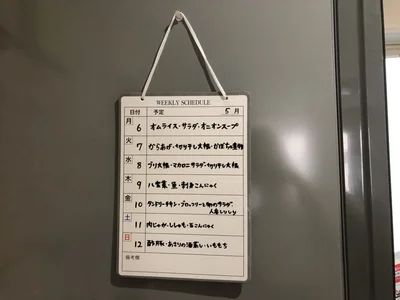 WEEKLY SCHEDULE
日付 予定 5月
月 6 オムライス・サラダ・オニオンスープ
火 7 からあげ・切り干し大根・かぼちゃ煮物
水 8 ブリ大根・マカロニサラダ・切り干し大根
木 9 八宝菜・豆・刺身こんにゃく
金 10 タンドリーチキン・ブロッコリーと卵のサラダ
人参しりしり
土 11 肉じゃが・ししゃも・玉こんにゃく
日 12 酢豚・あさりの酒蒸し・いももち
備考欄